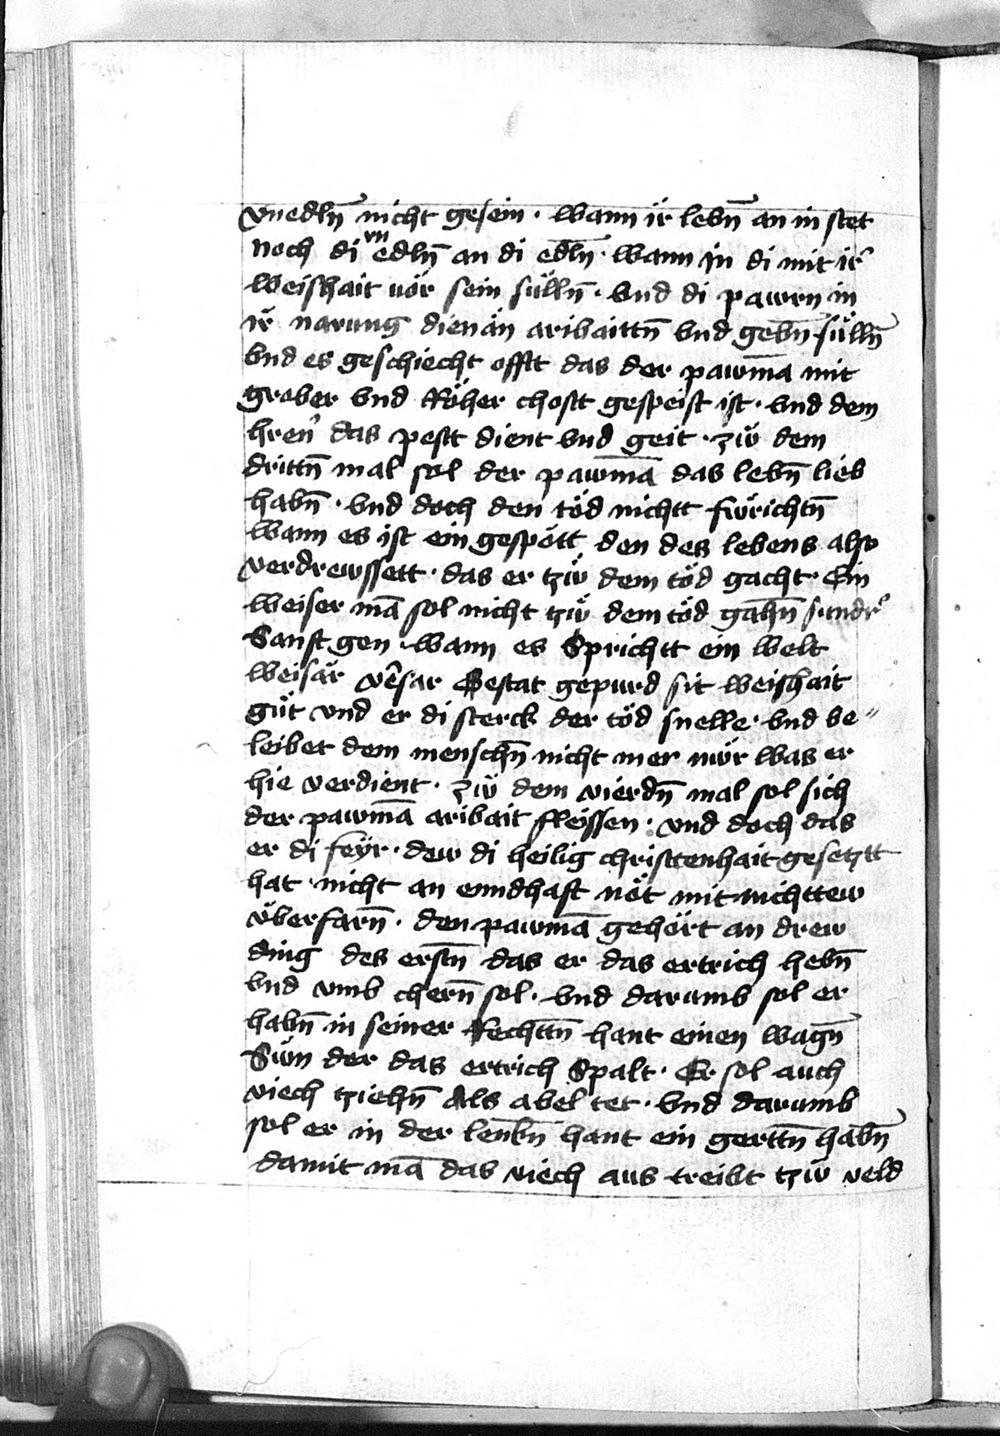 vnedln̄ nicht gesein · wann ir̈ lebn̄ an in stet
noch di vn edln̄ an di edln̄ · wann in di mit ir
weishait vör sein sülln̄ · vnd di pawrn in
ir̈ narung dienän aribaittn̄ vnd gebn̄ sülln̄
vnd es geschiecht offtt das der pawmā mit
grober vnd Röher chostt gespeist ist · vnd dem
hren das pestt dient vnd geit · zẅ dem
drittn̄ mal sol der pawmā das lebn̄ lieb
habn̄ · vnd doch den töd nichtt fẅrichtn̄
wann es ist ein gespött den des lebens also
verdrewssett · das er tzẅ dem töd gacht · Ein
weiser mā sol nicht tzẅ dem töd gahn̄ sundr
Sanft gen · wann es Sprichtt ein welt
weisär vêsar Gestat gepurd sit weishait
güt vnd er di sterck der töd snelle · vnd be〃
leibet dem menschn̄ nicht mer nẅr was er
hie verdient · zẅ dem vierdn̄ mal sol sich
der pawmā aribait fleissen · vnd doch das
er di feyr · dew di heilig christtenhait gesetztt
hat · nicht an enndhaft nöt mit nichttew
v̈berfarn̄ · den pawmā gehört an drew
ding des erstn̄ das er das ertrich hebn̄
vnd vmb chern̄ sol · vnd darumb sol er
habn̄ in seiner Rechttn̄ hant einen wagn̄
Sün der das ertrich Spalt · Er sol auch
viech tziehn̄ Als abel tet · vnd darumb
sol er in der lenkn̄ hant ein gerttn̄ habn̄
damit mā das viech aus treibt tzẅ veld